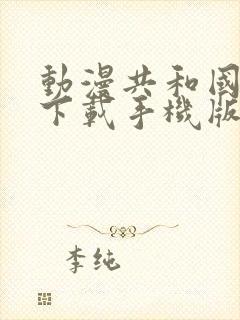 動漫共和國
下載手機版
李純